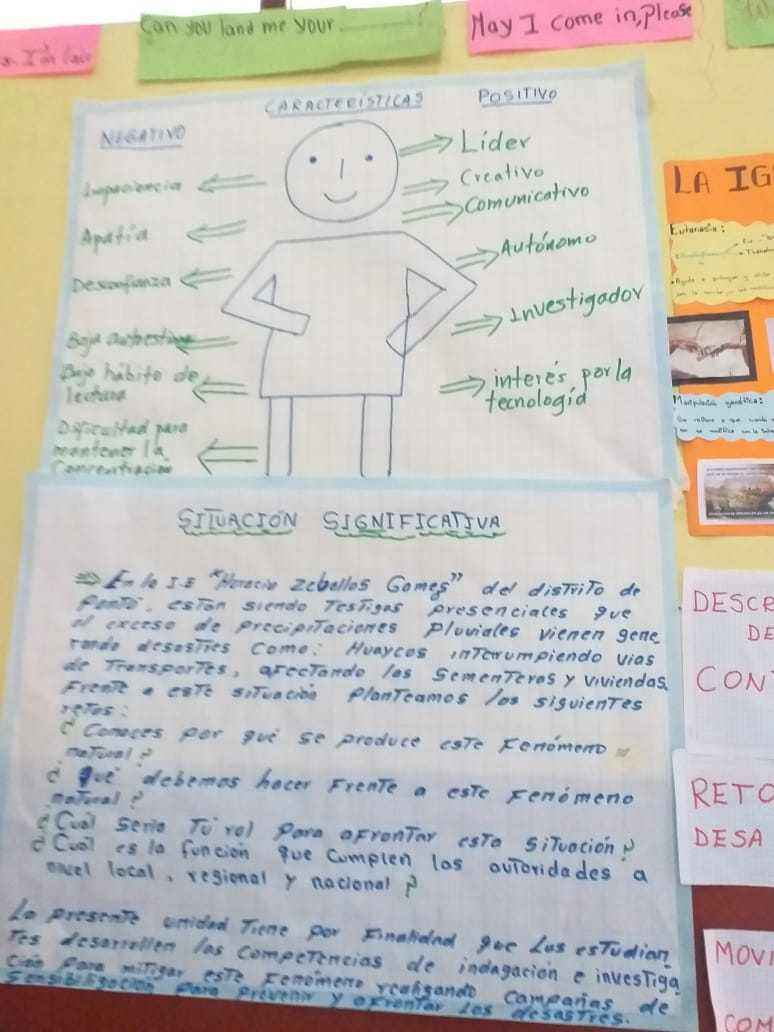 Can you land me your ?
May I come in, please
CARACTERÍSTICAS
NEGATIVO
POSITIVO
Impaciencia
Apatía
Desconfianza
Baja autoestima
Bajo hábito de
lectura
Dificultad para
mantener la
Concentración
Líder
Creativo
Comunicativo
Autónomo
Investigador
interés por la
tecnología
SITUACIÓN SIGNIFICATIVA
En la I.E "Horacio Zeballos Gomes" del distrito de
están siendo Testigos presenciales que
el exceso de precipitaciones pluviales vienen gene
rando desastres como: Huaycos interrumpiendo vias
de Transportes, afectando las sementeras y viviendas.
Frente a este situación planteamos los siguientes
retos:
¿Conoces por qué se produce este Fenómeno
natural?
¿Qué debemos hacer Frente a este Fenómeno
natural?
¿Cuál seria Tú rol para afrontar esta situación?
¿Cuál es la función que cumplen las autoridades a
nivel local, regional y nacional?
La presente unidad Tiene por Finalidad que Los estudian
Tes desarrollen las competencias de indagación e investiga
ción para mitigar este Fenómeno realizando campañas de
Sensibilización para prevenir y afrontar los desastres.
LA IG
Eutanasia:
Manipulación genética:
DESCR
DE
CON
RETO
DESA
MOVI
COM